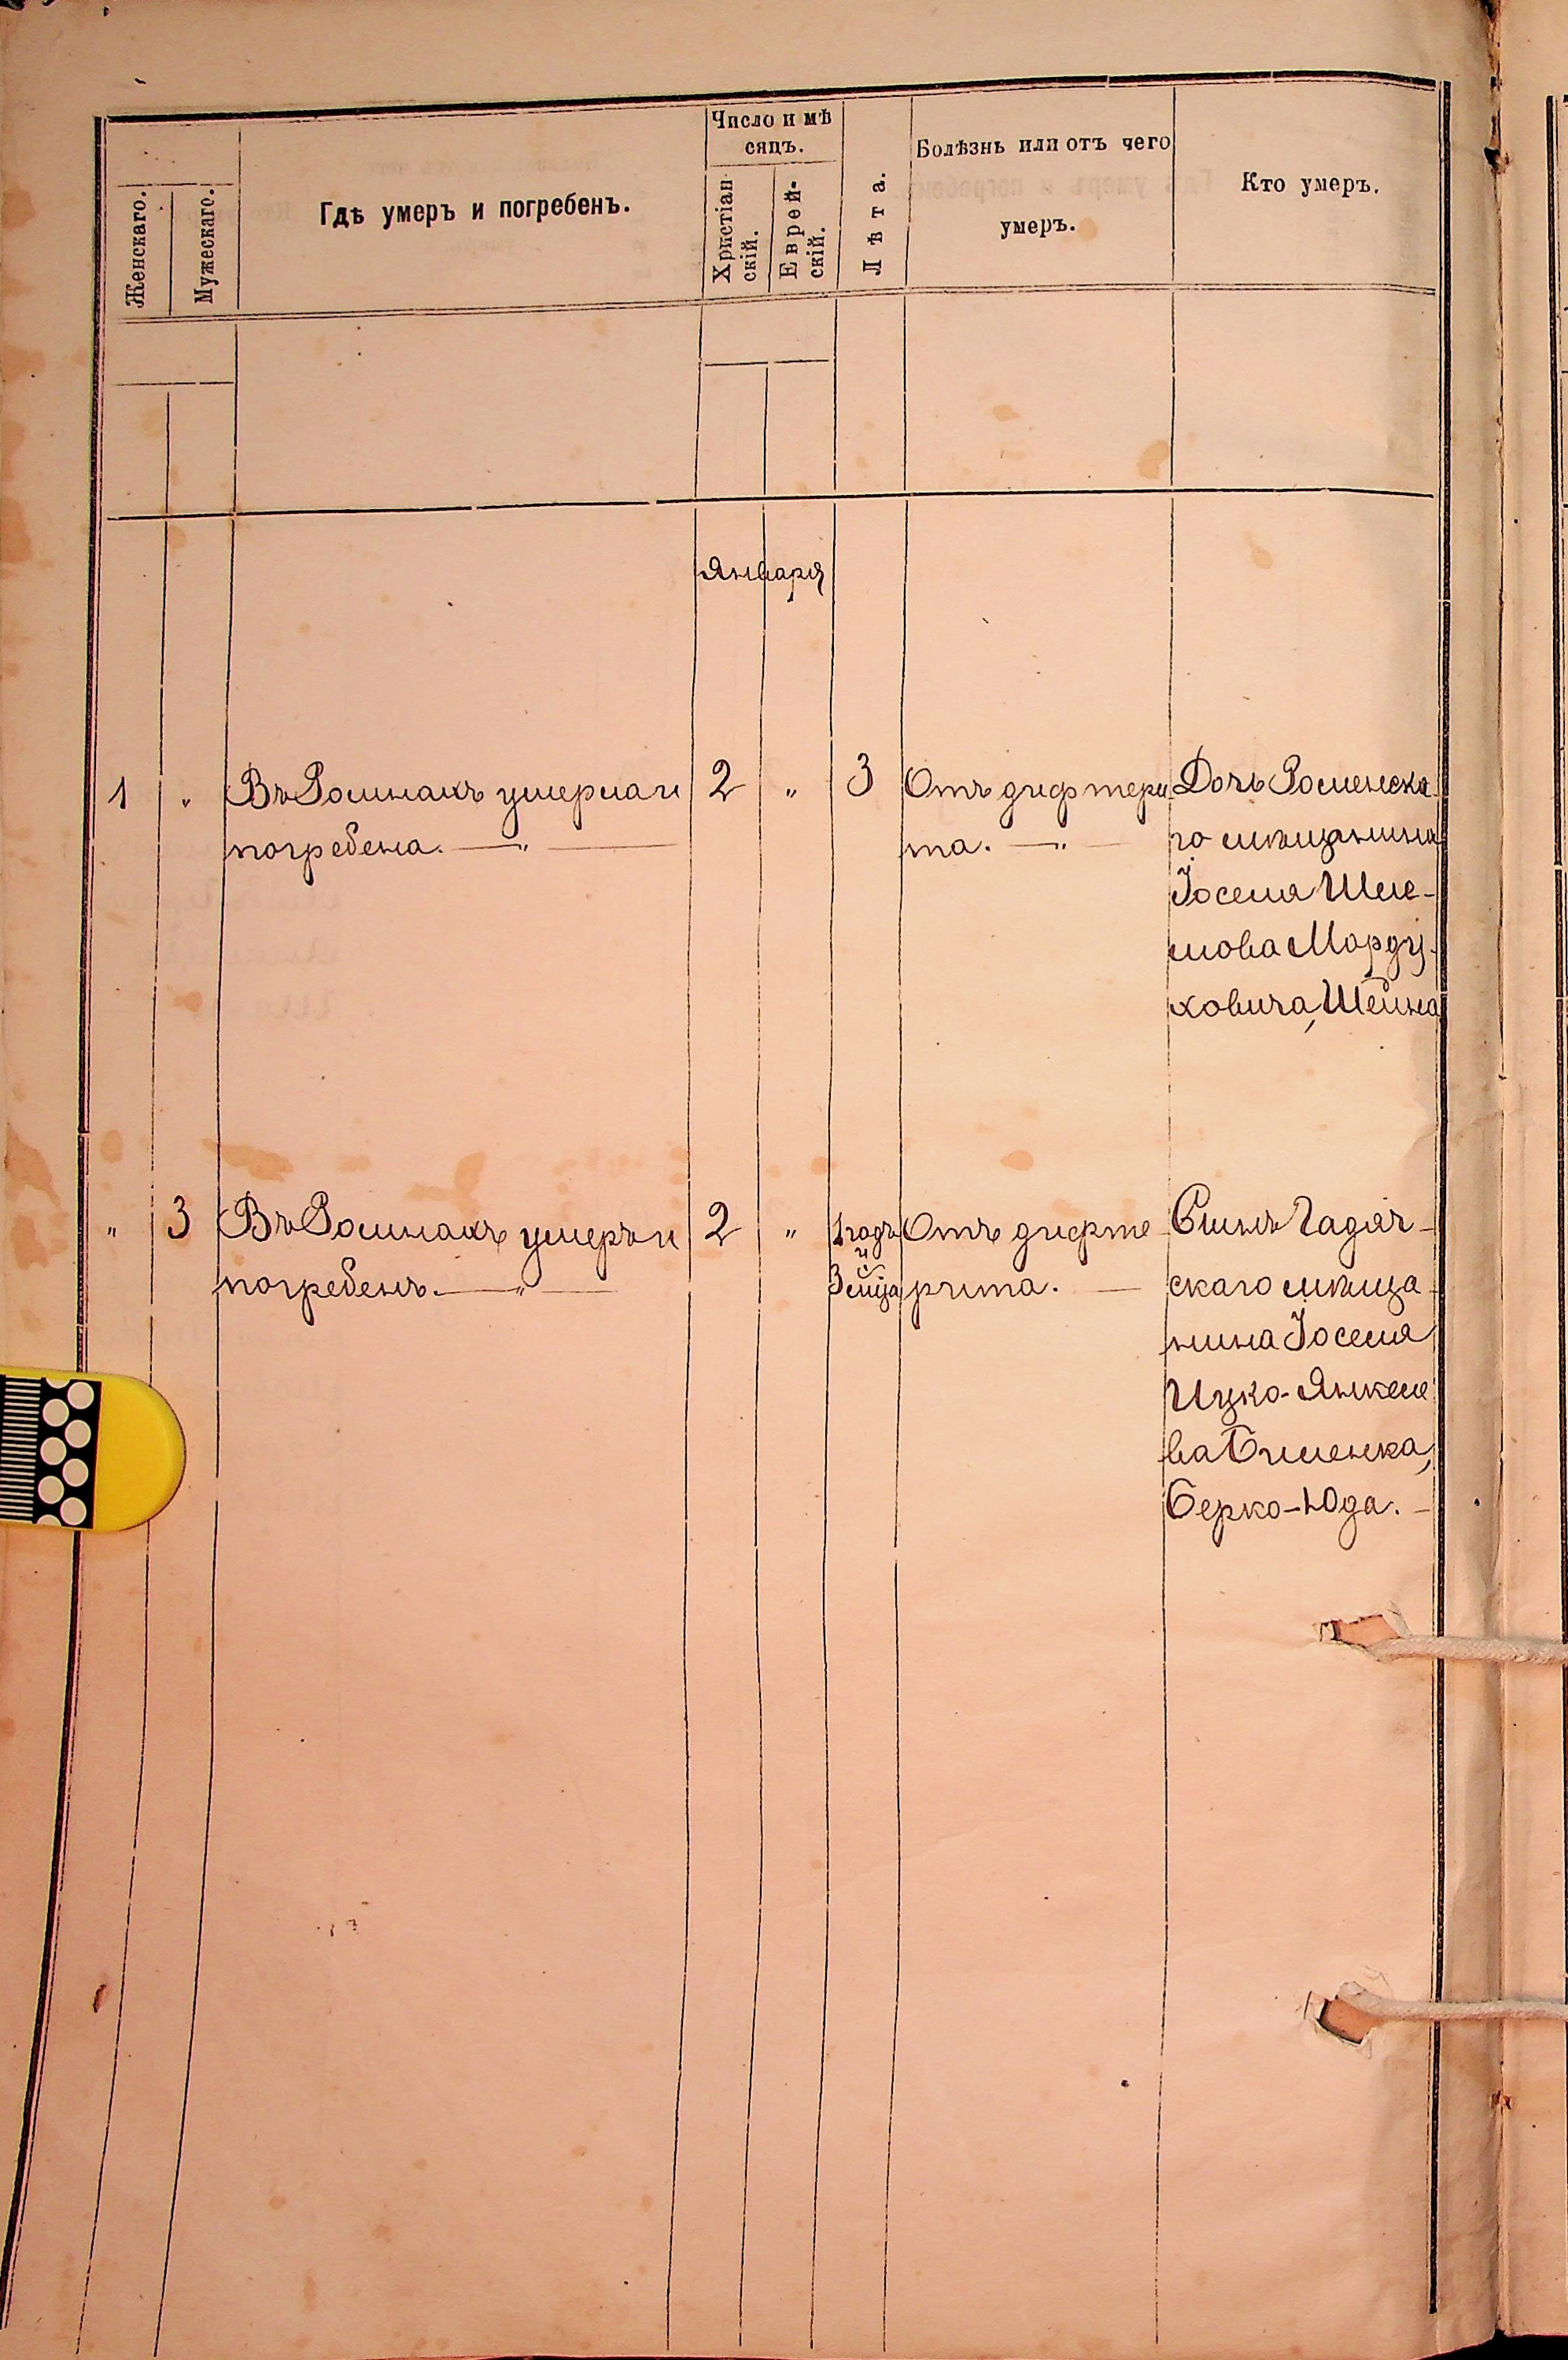 Женскаго.
Мужескаго.
Гдѣ умеръ и погребенъ.
Число и мѣ
сяцъ.
Христіан
скій.
Еврей-
скій.
Лѣта.
Болѣзнь или отъ чего
умеръ.
Кто умеръ.
Января
1 " Въ Ромнахъ умерла и
погребена. — " —
2 " 3
Отъ дифтери
та. — " —
Дочь Роменска-
го мѣщанина
Іоселя Шле-
мова Марду-
ховича, Шейна
" 3 Въ Ромнахъ умеръ и
погребенъ. — " —
2 "
1 годъ
и
3 мца
Отъ дифте
рита. —
Сынъ Гадяч-
скаго мѣща-
нина Іоселя
Ицко-Янкеле
ва Биленка,
Берко-Юда. —